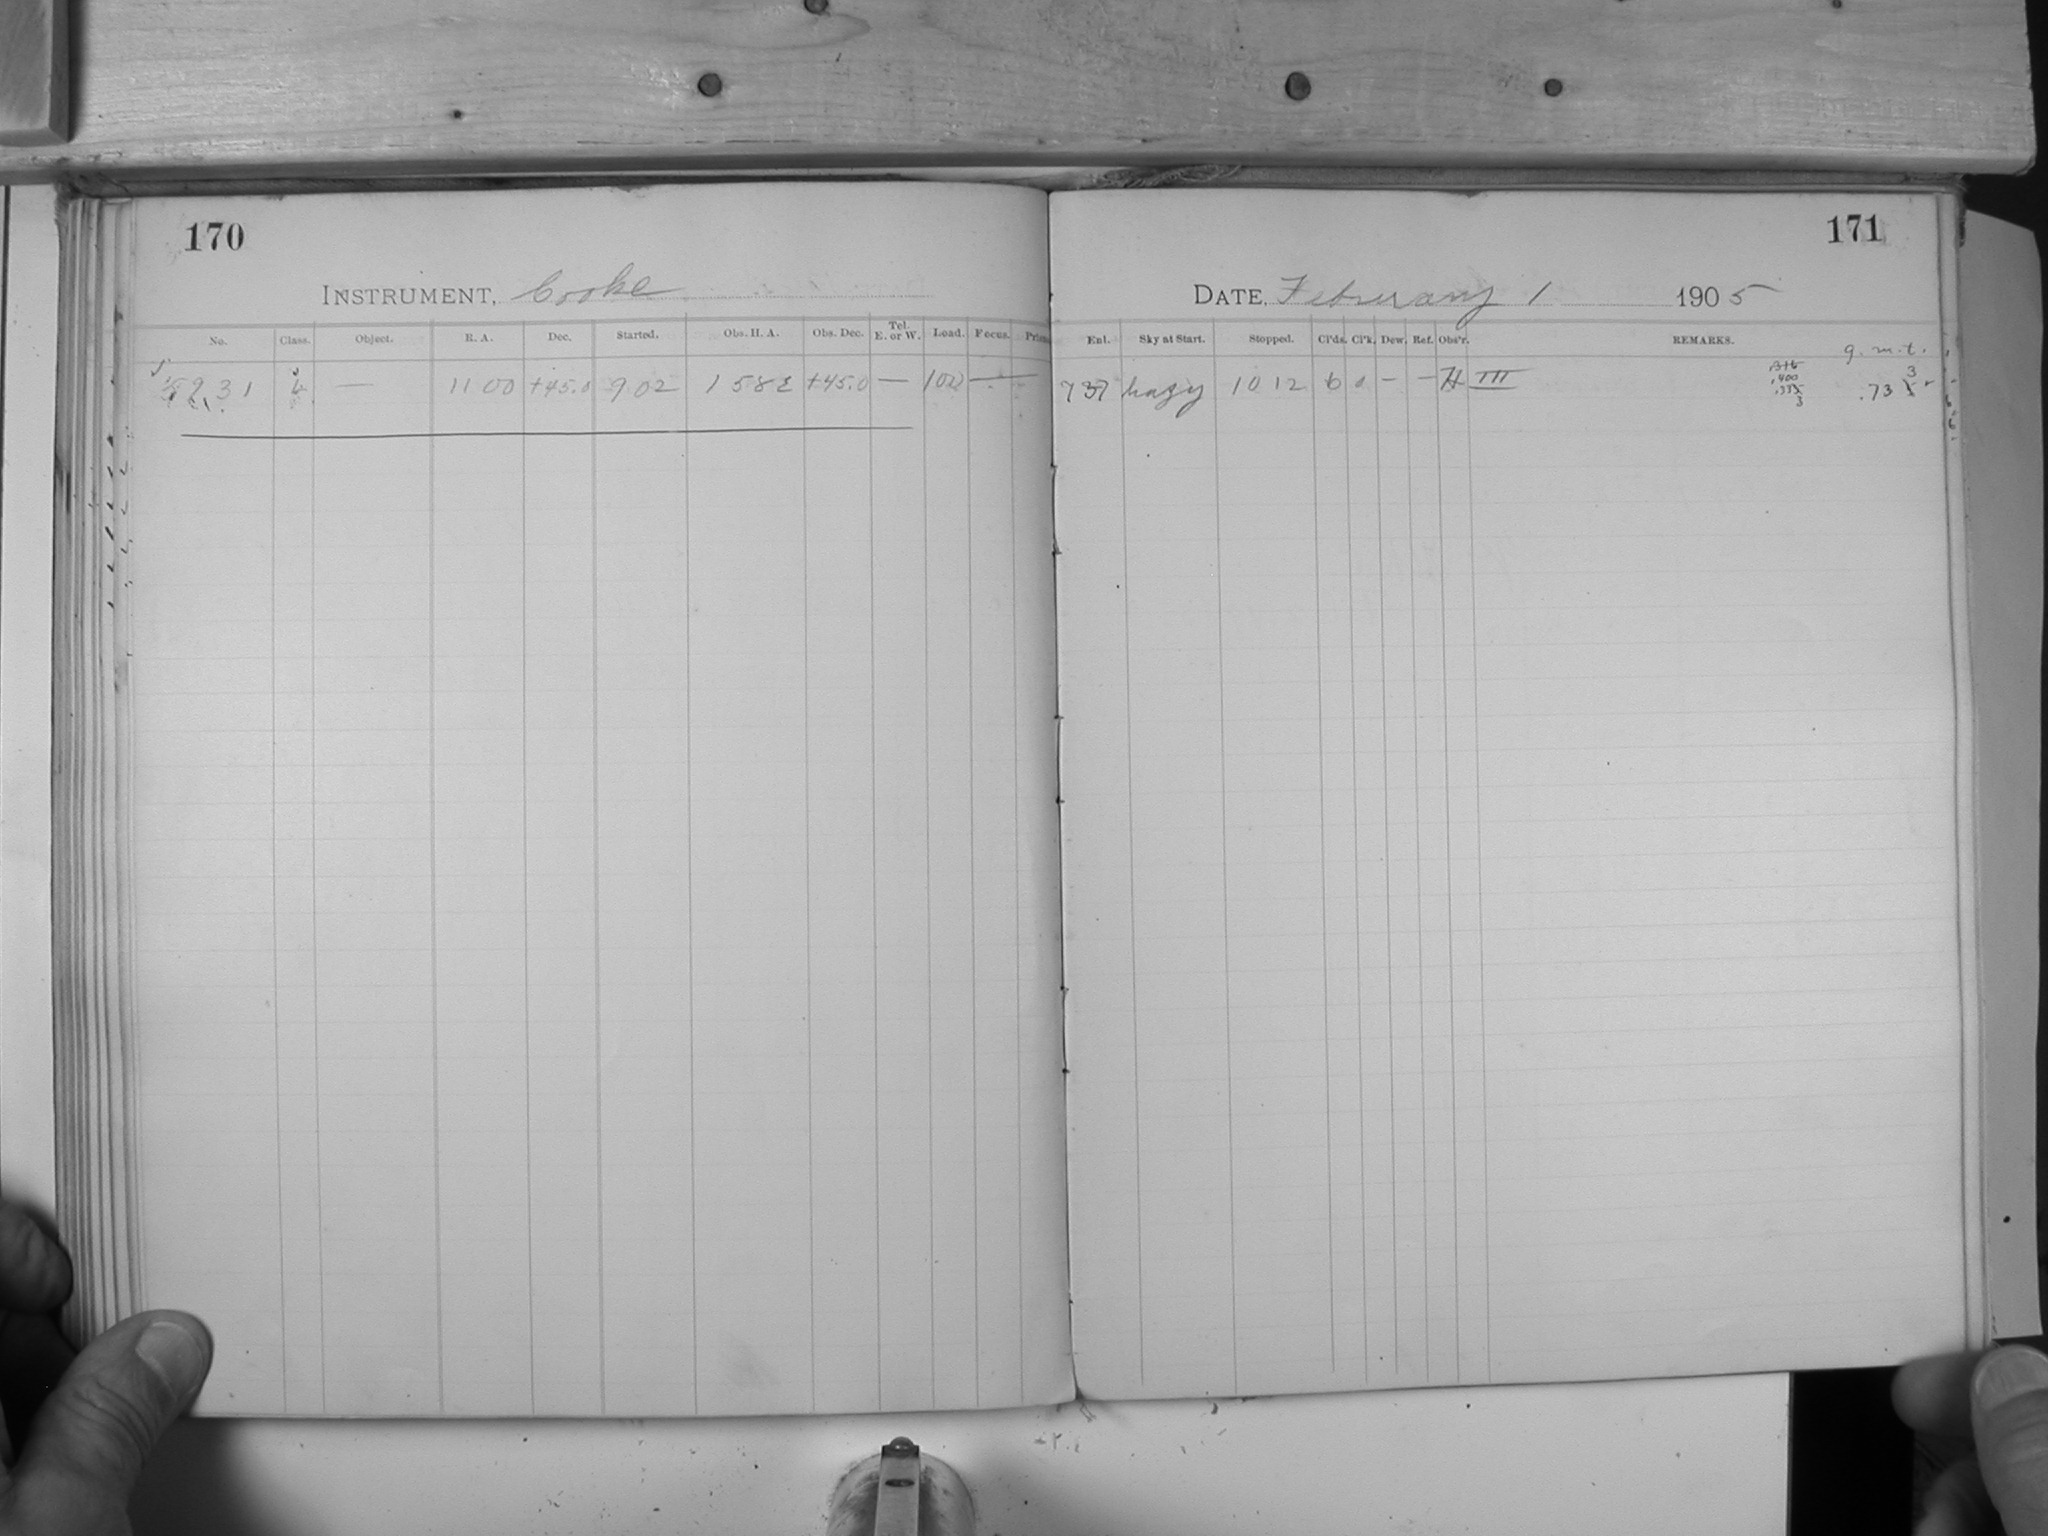 170
INSTRUMENT, Cooke
No. Class. Object. R. A. Dec. Started. Obs. H. A. Obs. Dec. Tel. E. or W. Load. Focus.
5231 — 11 00 +45.0 9 02 1 58 E +45.0 — 100 —
171
DATE, February 1 1905
Enl. Sky at Start. Stopped. Cl'ds. Cl'k. Dew. Ref. Obs'r. REMARKS.
g. m. t.
737 hazy 10 12 6 0 — — H III
.400
.333
3
3
.73